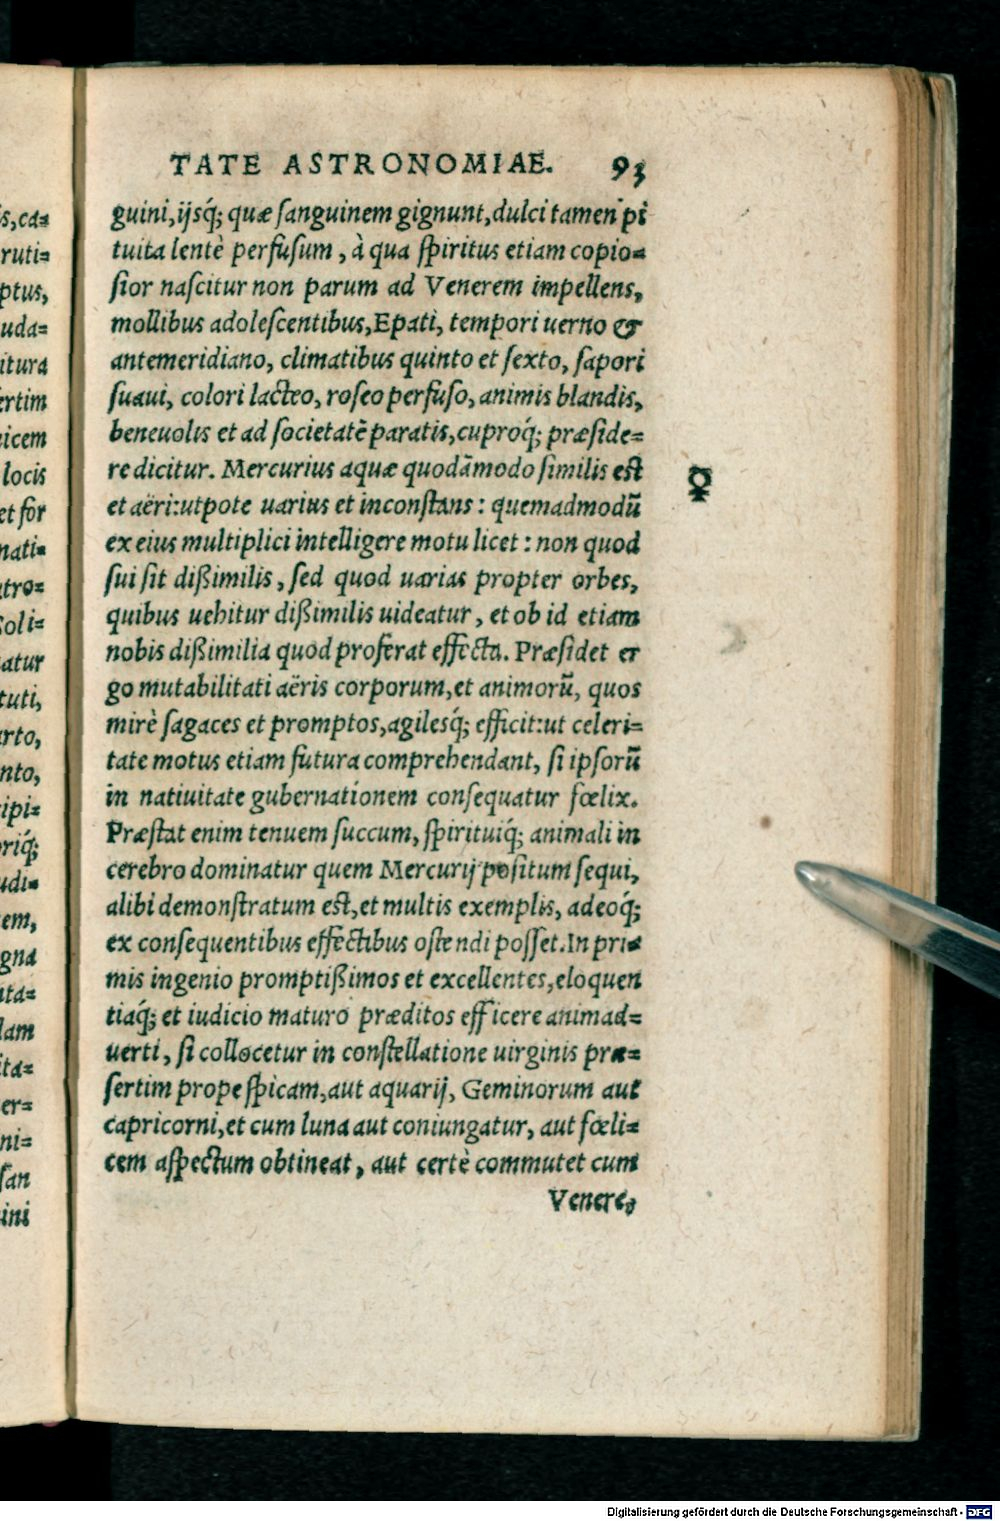 TATE ASTRONOMIAE. 93
guini, ijsq́; quæ sanguinem gignunt, dulci tamen pi
tuita lentè perfusum, à qua spiritus etiam copio=
sior nascitur non parum ad Venerem impellens,
mollibus adolescentibus, Epati, tempori uerno &
antemeridiano, climatibus quinto et sexto, sapori
suaui, colori lacteo, roseo perfuso, animis blandis,
beneuolis et ad societatē paratis, cuproq́; præside=
re dicitur. Mercurius aquæ quodāmodo similis est
et aëri: utpote uarius et inconstans: quemadmodū
ex eius multiplici intelligere motu licet: non quod
sui sit dißimilis, sed quod uarias propter orbes,
quibus uehitur dißimilis uideatur, et ob id etiam
nobis dißimilia quod proferat effecta. Præsidet er
go mutabilitati aëris corporum, et animorū, quos
mirè sagaces et promptos, agilesq́; efficit: ut celeri=
tate motus etiam futura comprehendant, si ipsorū
in natiuitate gubernationem consequatur fœlix.
Præstat enim tenuem succum, spirituiq́; animali in
cerebro dominatur quem Mercurij positum sequi,
alibi demonstratum est, et multis exemplis, adeoq́;
ex consequentibus effectibus ostendi posset. In pri=
mis ingenio promptißimos et excellentes, eloquen
tiaq́; et iudicio maturo præditos efficere animad=
uerti, si collocetur in constellatione uirginis præ=
sertim prope spicam, aut aquarij, Geminorum aut
capricorni, et cum luna aut coniungatur, aut fœli=
cem aspectum obtineat, aut certè commutet cum
Venere,
☿
s, ca=
ruti=
ptus,
uda=
itura
ertim
uicem
locis
et for
nati=
tro=
Soli=
atur
tuti,
arto,
nto,
ipi=
riq́;
udi=
em,
gna
ita=
lam
ita=
er=
ni=
san
uini
Digitalisierung gefördert durch die Deutsche Forschungsgemeinschaft - DFG